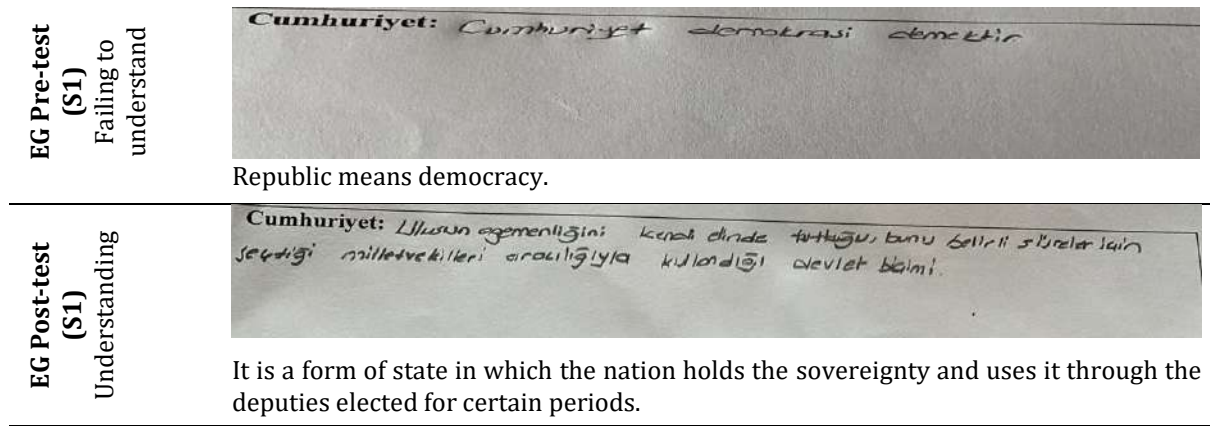 EG Pre-test
(S1)
Failing to
understand
Cumhuriyet: Cumhuriyet demokrasi demektir
Republic means democracy.
EG Post-test
(S1)
Understanding
Cumhuriyet: Ulusun egemenliğini kendi elinde tuttuğu, bunu belirli süreler için
seçtiği milletvekilleri aracılığıyla kullandığı devlet biçimi.
It is a form of state in which the nation holds the sovereignty and uses it through the
deputies elected for certain periods.